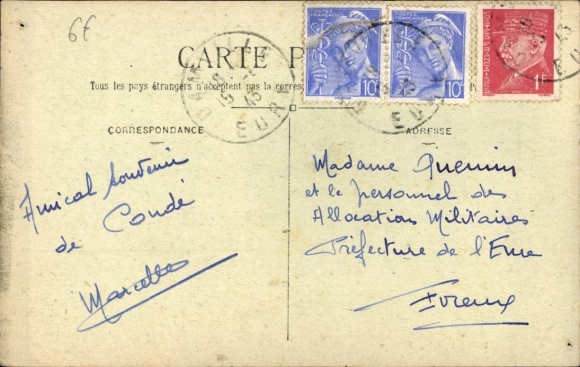 6€
CARTE P
Tous les pays étrangers n'acceptent pas la corres
CORRESPONDANCE
ADRESSE
POSTES FRANÇAISES
10c
POSTES FRANÇAISES
10c
1F
DAM
EURE
43
EURE
43
Amical souvenir
de Condé
Marcelle
Madame Quemin
et le personnel des
Allocation Militaires
Préfecture de l'Eure
Evreux